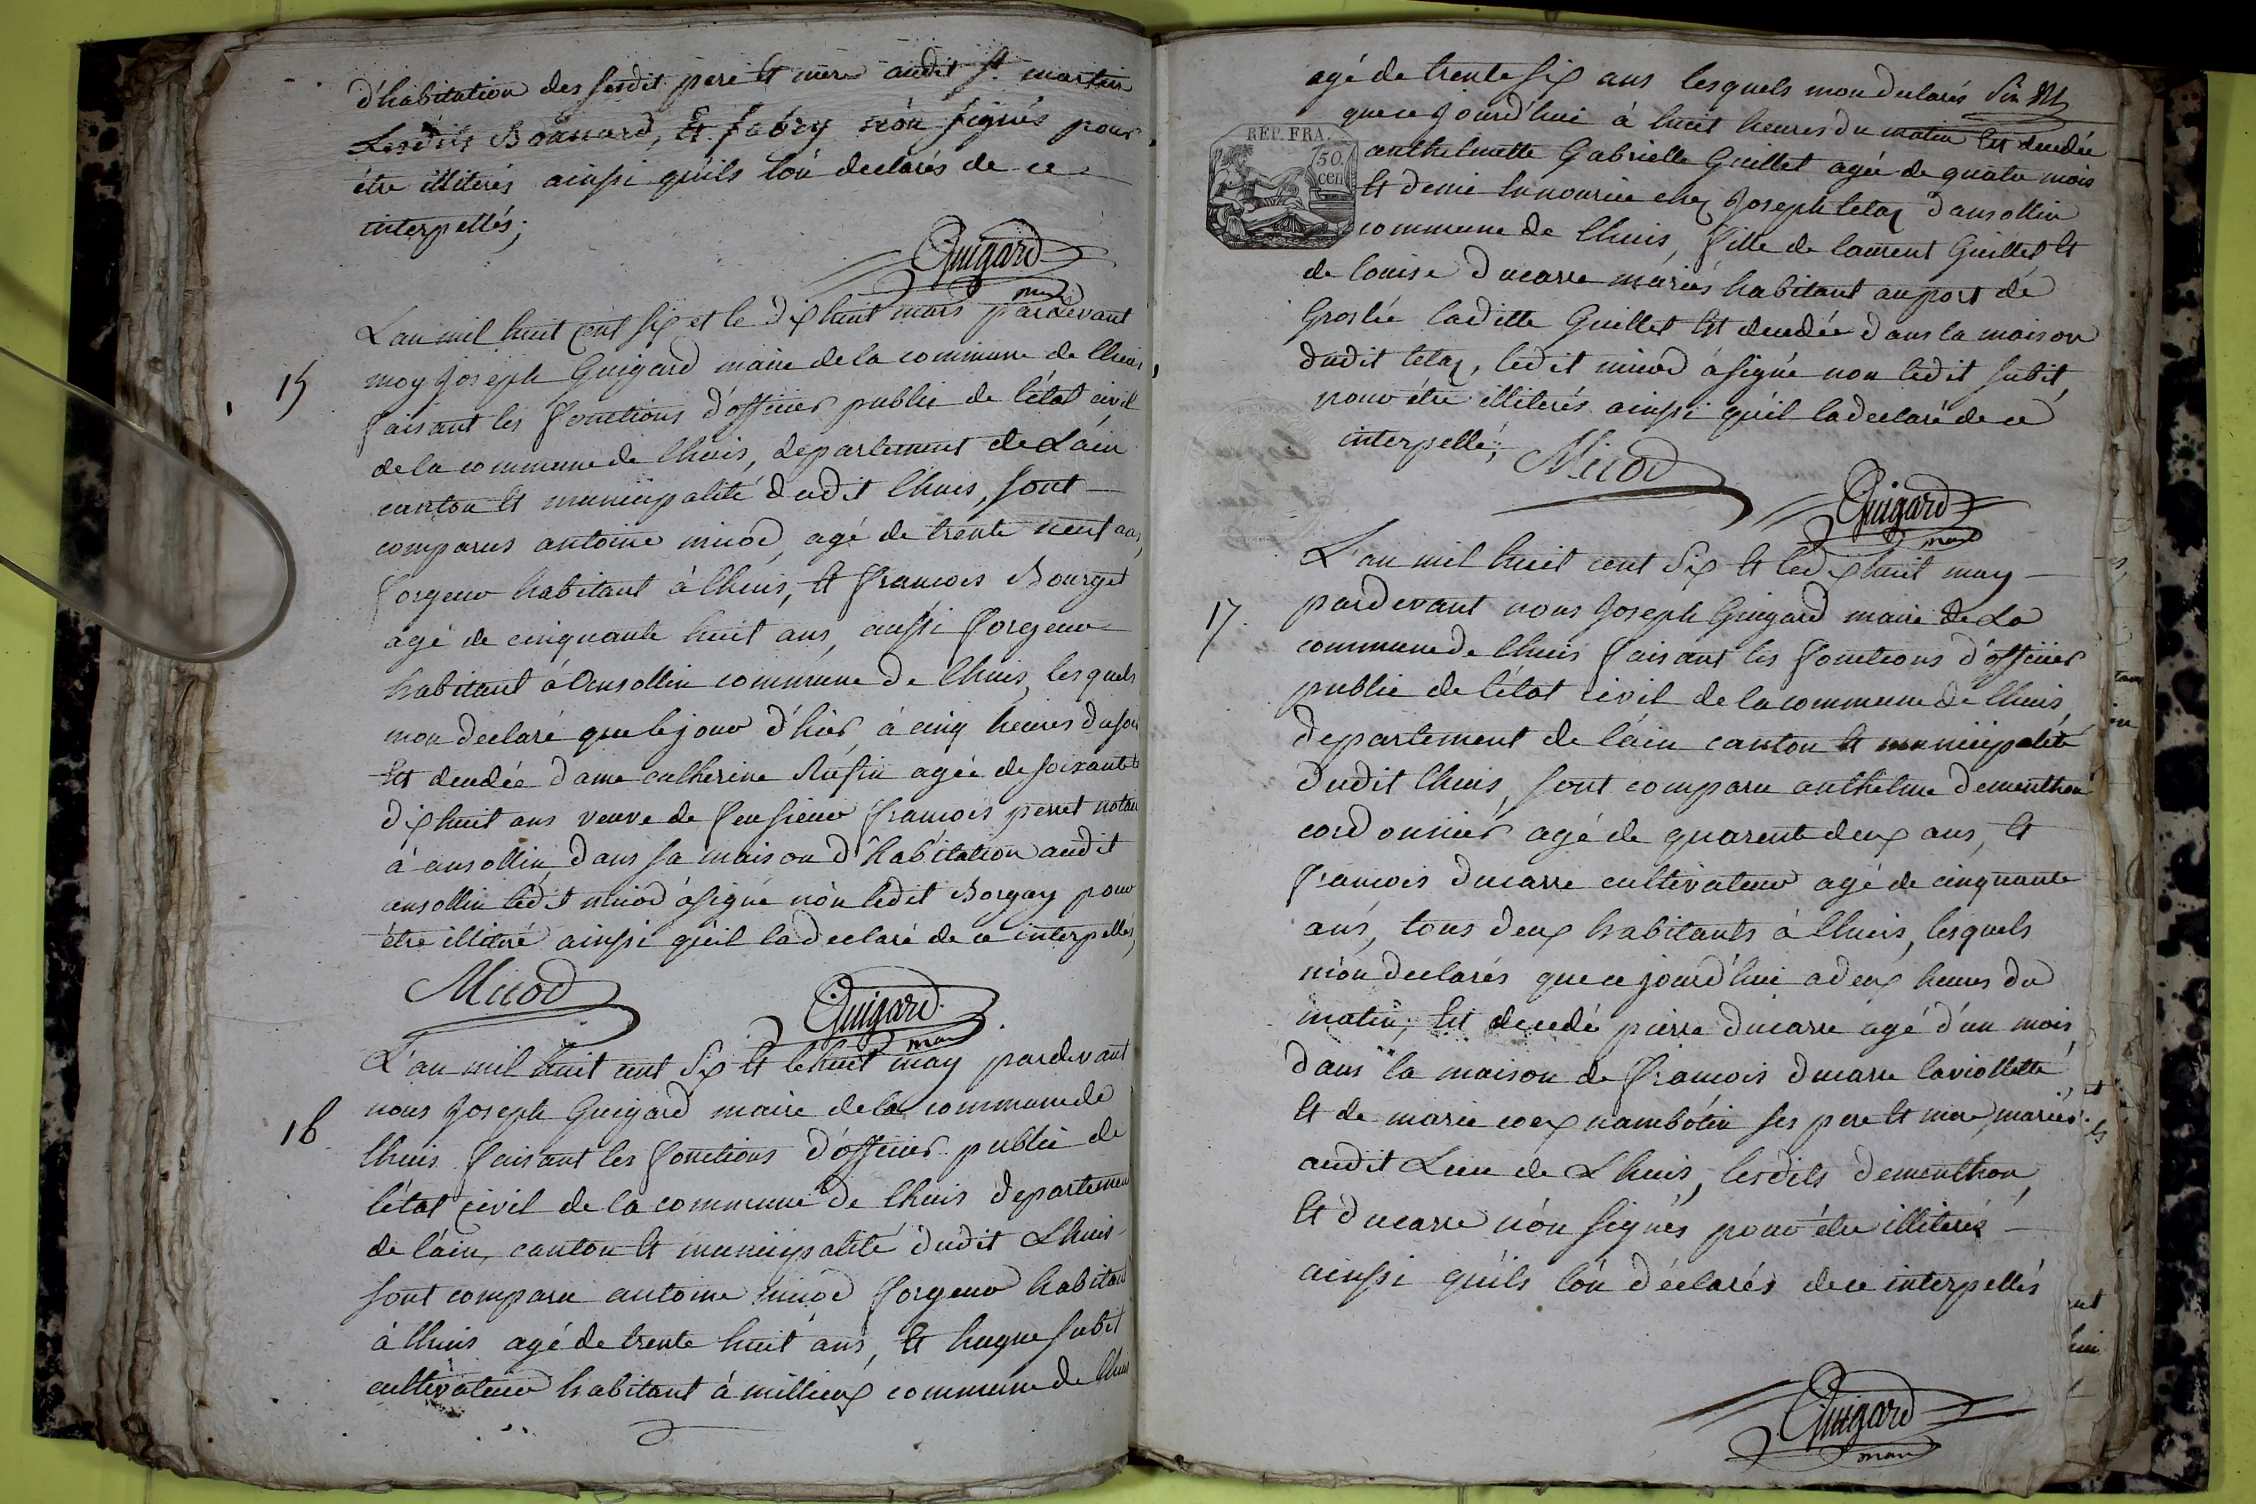 d'habitation des susdit pere et mere audit St martin
Lesdits Bonnard, et fabry nón signés pour
être illiterés ainssi qu'ils lón declarés de ce
interpellés;
Guigard
maire
L'an mil huit cent six et le dix huit mars pardevant
15
moy Joseph Guigard maire de la commune de lhuis,
faisant les fonctions d'officier public de l'état civil
de la commune de lhuis, departement de L'ain
canton et municipalité dudit lhuis, sont
comparus antoine micod, agé de trente neuf ans,
forgeur habitant à lhuis, et francois Bourget
agé de cinquante huit ans, aussi forgeur
habitant à Ansollin commune de lhuis, lesquels
mon declaré que le jour d'hier, à cinq heures du soir
Est decedée dame catherine Rufin agée de soixante
dix huit ans veuve de feu sieur francois perret notaire
à ansollin, dans sa maison d'habitation audit
ansollin ledit micod à signé nón ledit Borgay pour
être illiteré ainssi qu'il la declaré de ce interpellés,
Micod
Guigard
maire
L'an mil huit cent six et le huit may pardevant
16
nous Joseph Guigard maire de la commune de
lhuis faisant les fonctions d'officier public de
l'état civil de la commune de lhuis departement
de l'ain, canton et municipalité dudit Lhuis
sont comparu antoine micod forgeur habitant
à lhuis agé de trente huit ans, et hugue subit
cultivateur habitant à millieux commune de lhuis
agé de trente six ans lesquels mon declarés
que ce jourd'hui à huit heures du matin Est decedée
REP. FRA.
50.
cen
anthelmette Gabrielle Guillet agée de quatre mois
et demie En nourice chez Joseph telaz d'ansollin
commune de lhuis, fille de laurent Guillet et
de louise ducarre mariés habitant au port de
Groslée laditte Guillet Est decedée dans la maison
dudit telaz, ledit micod à signé non ledit subit,
pour être illiterés ainssi qu'il la declaré de ce
interpellé;
Micod
Guigard
maire
L'an mil huit cent six et le dix huit may
17.
pardevant nous Joseph Guigard maire de La
commune de lhuis faisant les fonctions d'officier
public de l'état civil de la commune de lhuis,
departement de l'ain canton et municipalité
dudit lhuis, sont comparu anthelme dementhon
cordonnier agé de quarente deux ans, et
francois ducarre cultivateur agé de cinquante
ans, tous deux habitants à lhuis, lesquels
món declarés que ce jourd'hui a deux heures du
matin, Est decedé pierre ducarre agé d'un mois,
dans la maison de francois ducarre laviollette,
et de marie coex nambotin ses pere et mere, mariés
audit Lieu de Lhuis, lesdits dementhon,
et ducarre nón signés pour être illiterés
ainssi qu'ils lón déclarés de ce interpellés
Guigard
maire